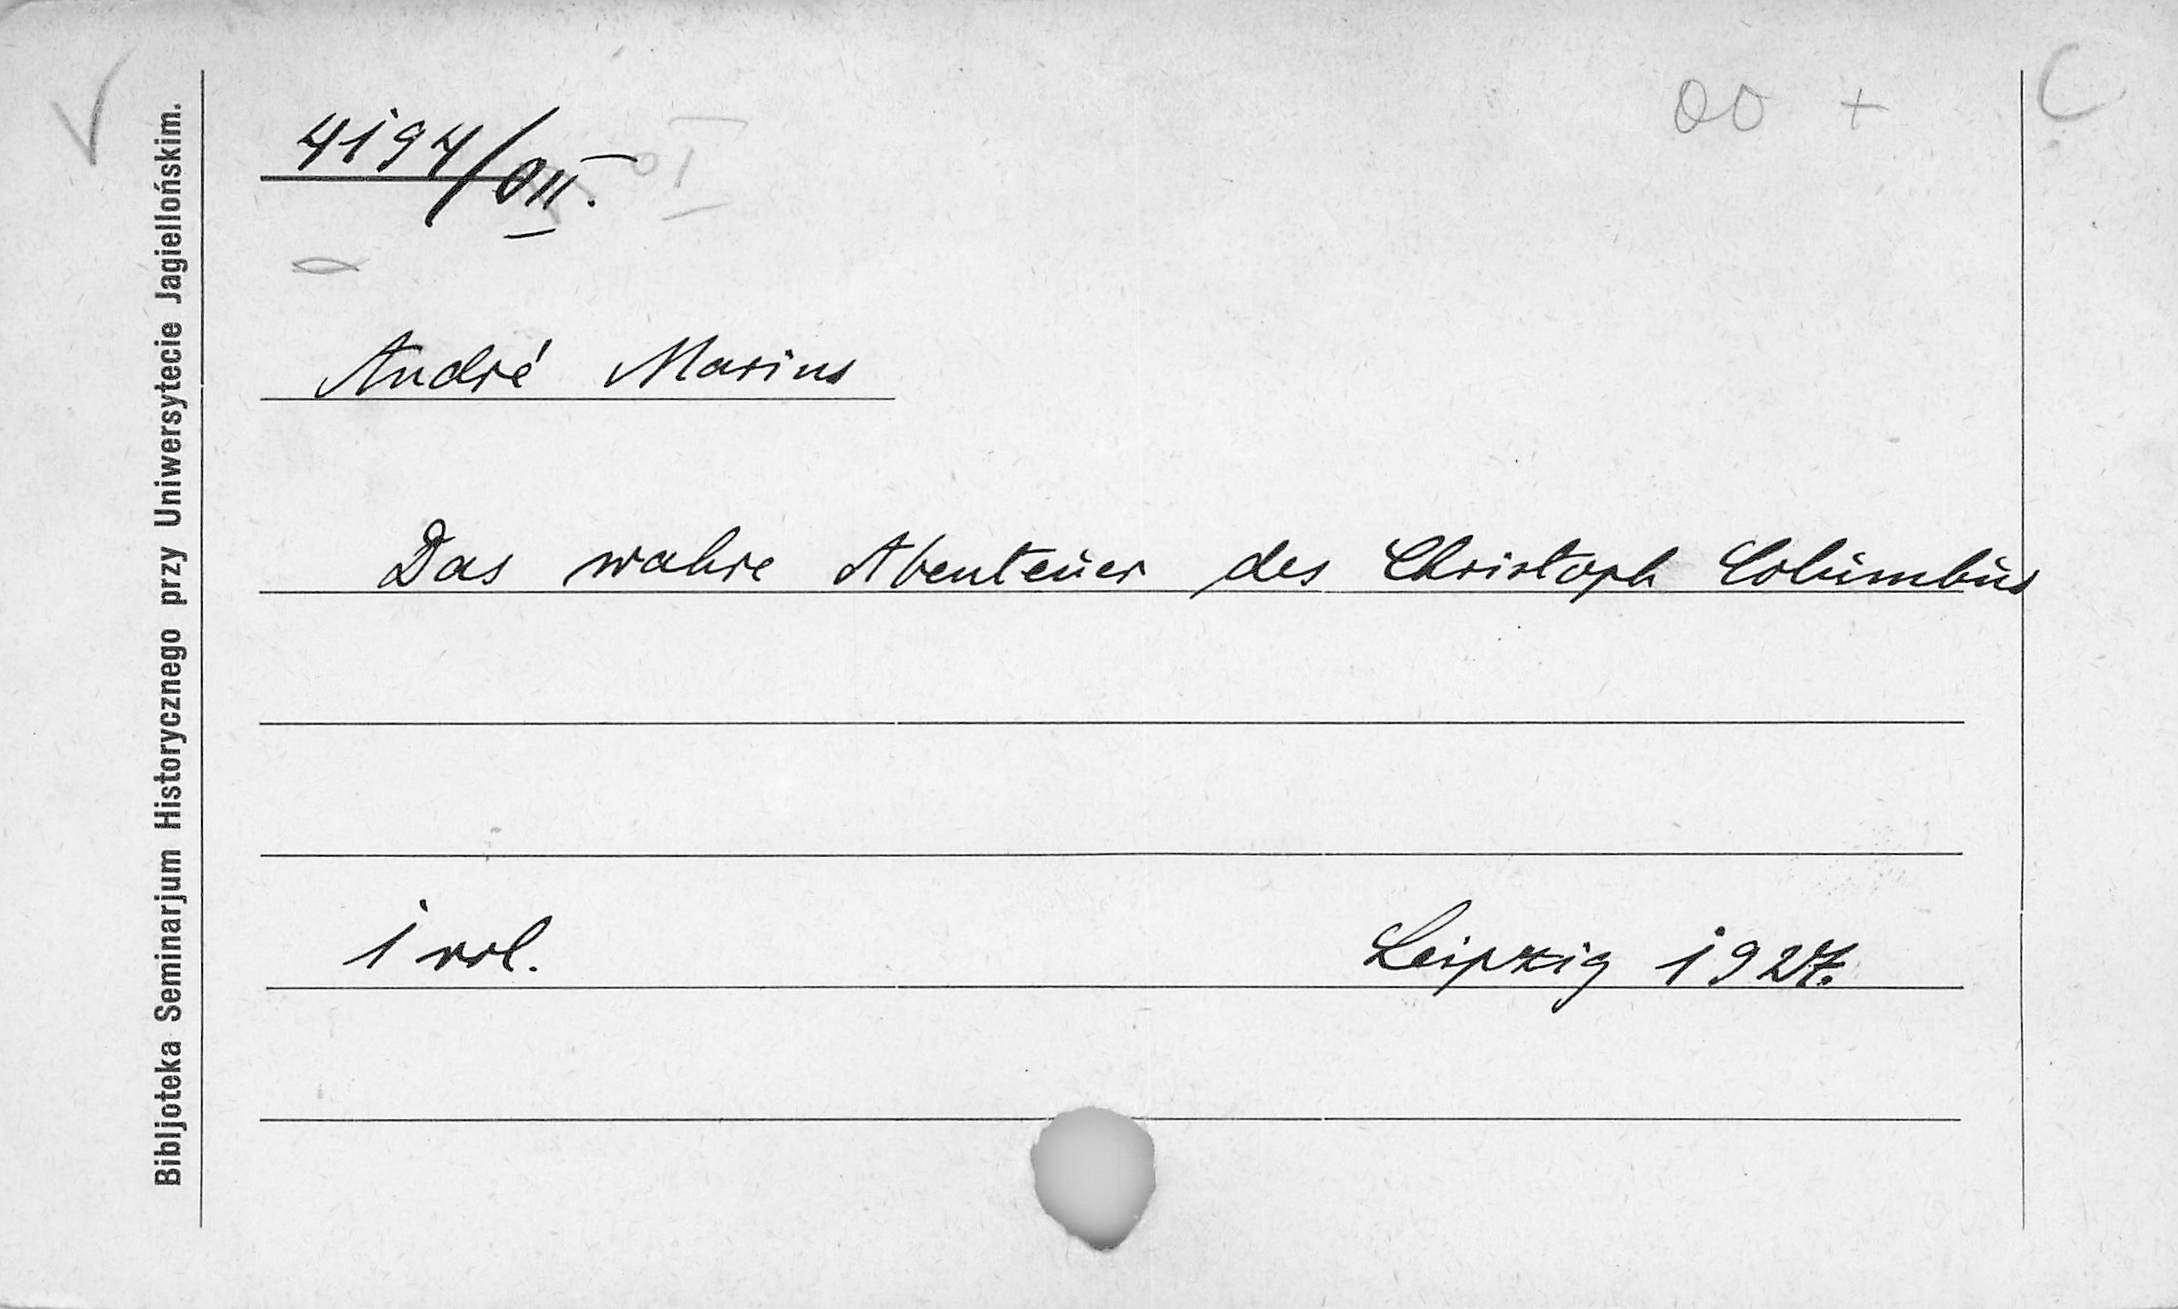 Bibljoteka Seminarjum Historycznego przy Uniwersytecie Jagiellońskim.
4194/VII.
OO + C
André Marius
Das wahre Abenteuer des Christoph Columbus
1 vol. Leipzig 1927.